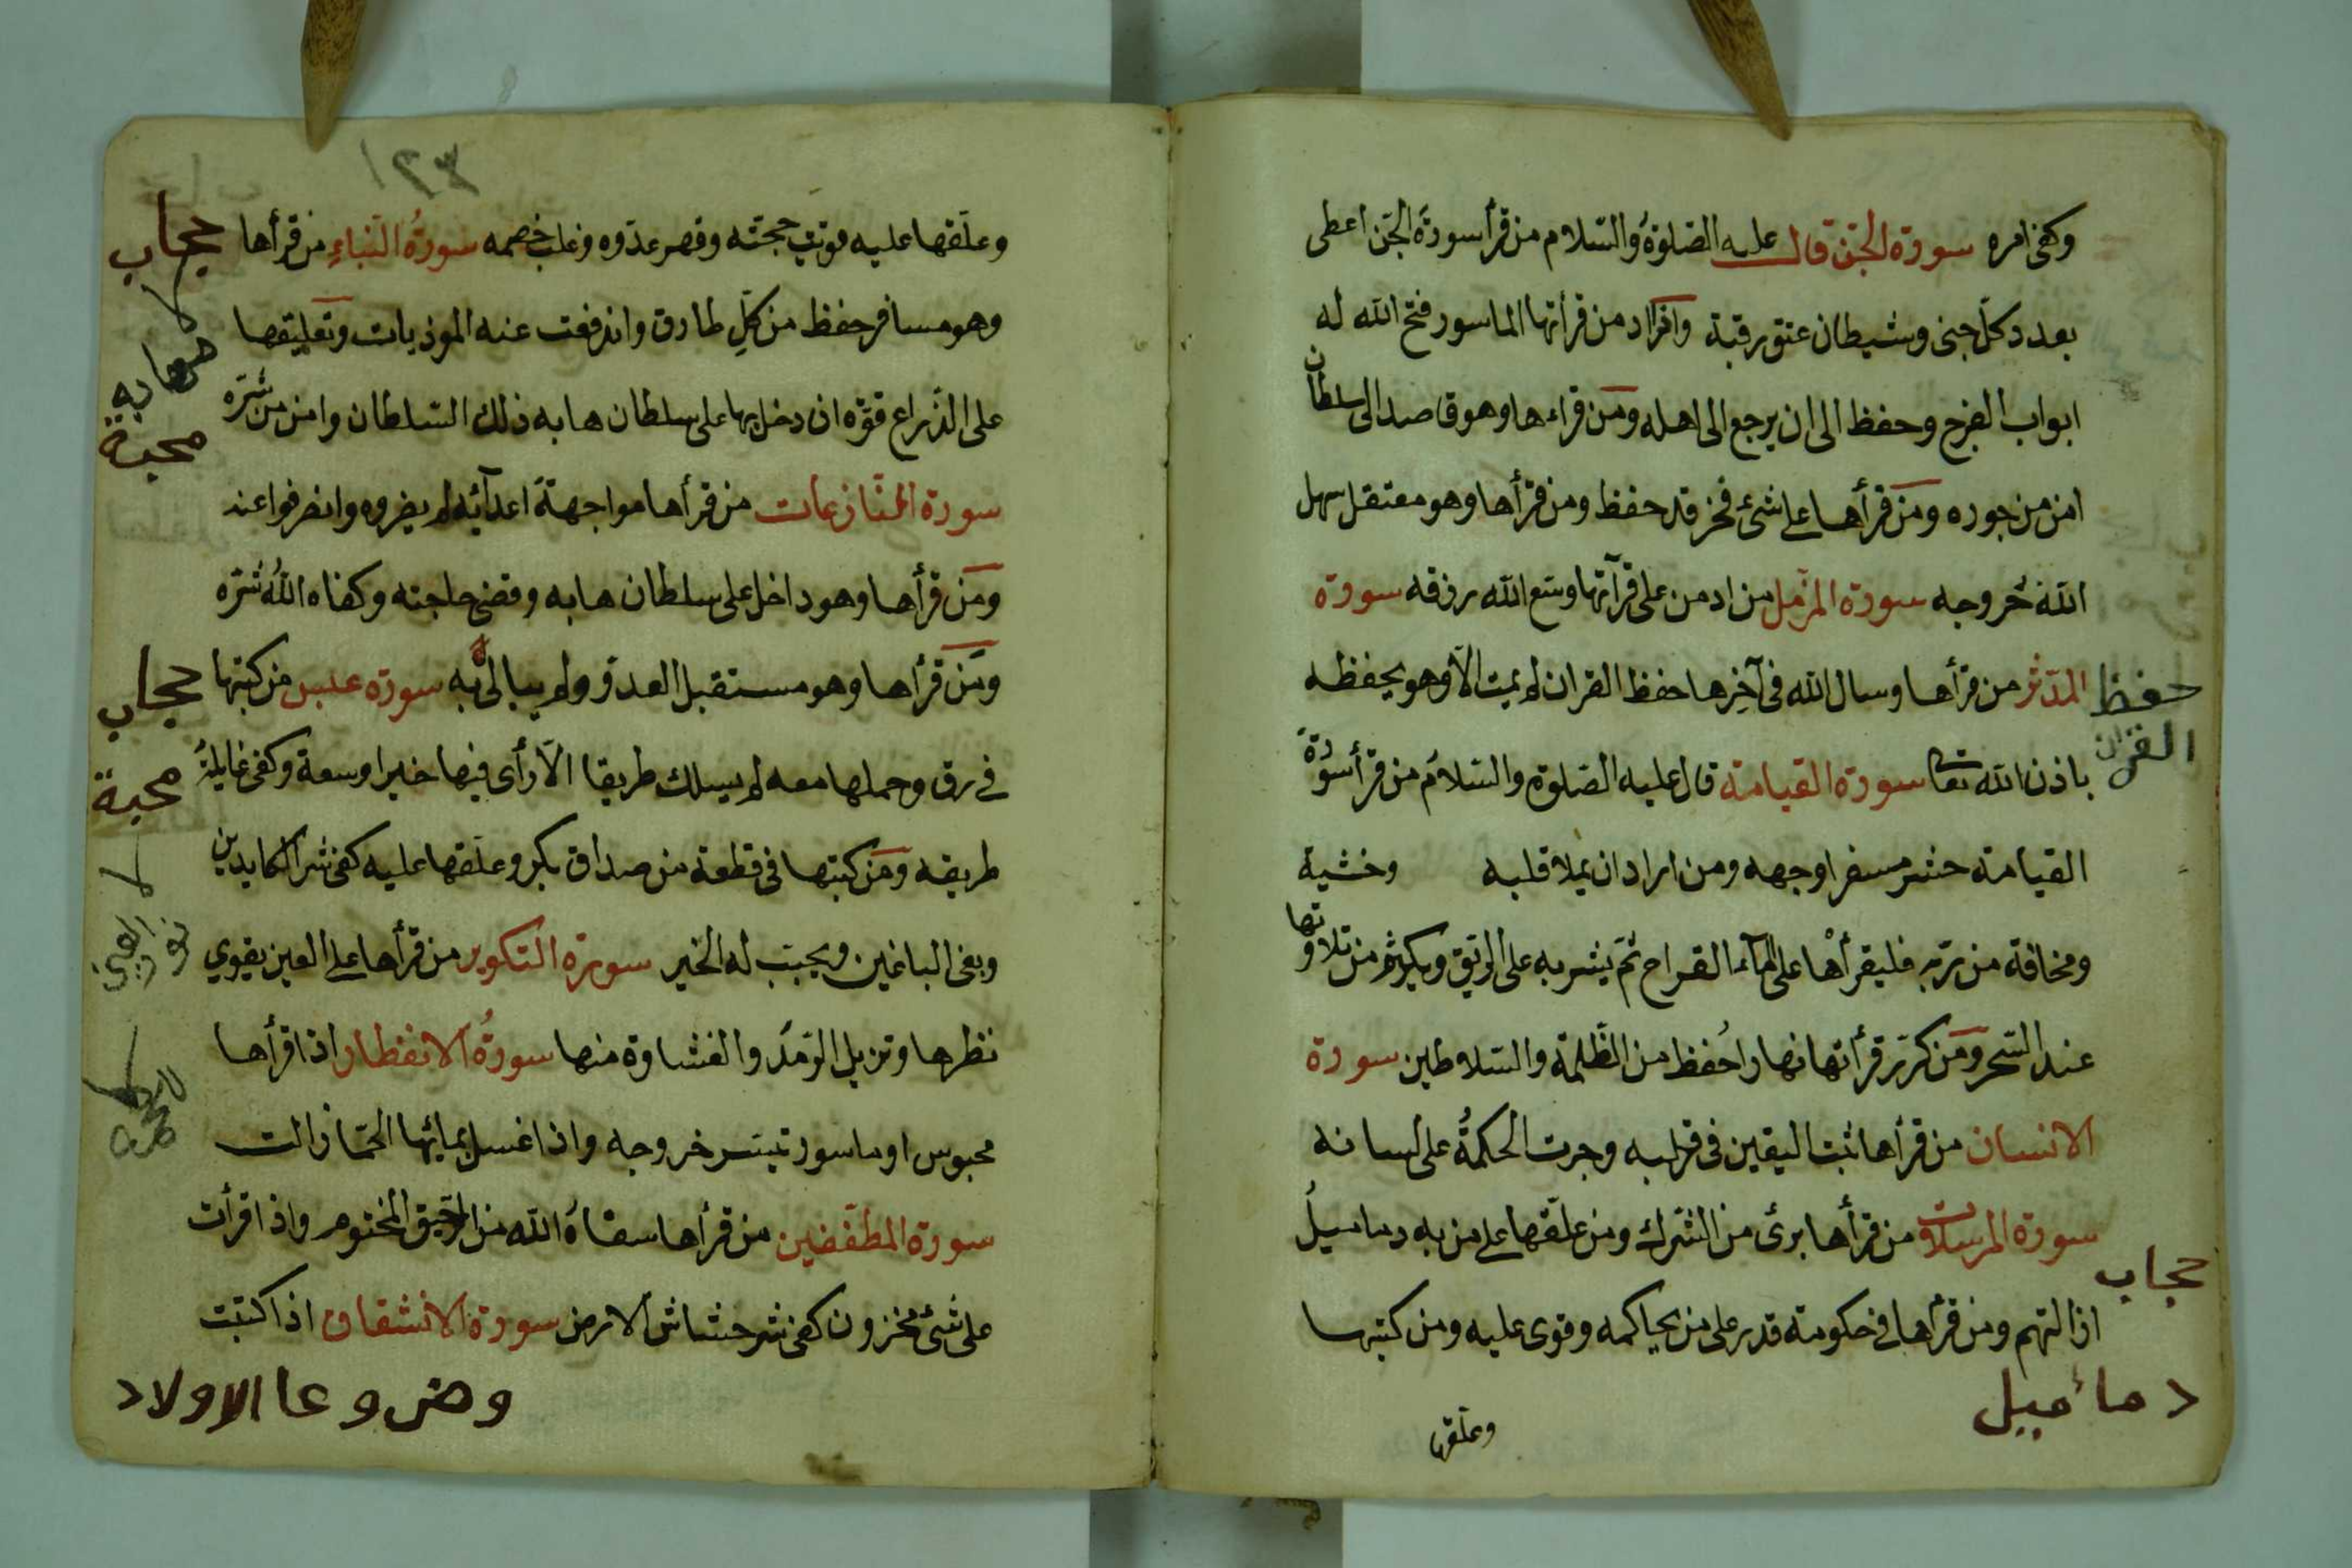 وكفى امره سورة الجن قال عليه الصلوة والسلام من قرأ سورة الجن اعطى
بعدد كل جنى وشيطان عتق رقبة واذا اد من قرأتها الماسور فتح الله له
ابواب الفرج وحفظ الى ان يرجع الى اهله ومن قراءها وهو قاصد الى سلطان
امن من جوره ومن قرأها على شئ فخزقد حفظ ومن قرأها وهو معتقل سهل
الله خروجه سورة المزمل من ادمن على قرآتها وسع الله رزقه سورة
المدثر من قرأها وسال الله فى آخرها حفظ القران لم يمت الا وهو يحفظه
باذن الله تعا سورة القيامة قال عليه الصلوة والسلام من قرأ سورة
القيامة حشر مسفرا وجهه ومن اراد ان يملا قلبه وخشية
ومخافة من ربه فليقرأها على المآء القراح ثم يشربه على الريق ويكثر من تلاوتها
عند السحر ومن كرر قرأتها نهارا حُفظ من الظلمة والسلاطين سورة
الانسان من قرأها ثبت اليقين فى قلبه وجرت الحكمةُ على لسانه
سورة المرسلات من قرأها برئ من الشرك ومن علقها على من به دماميلُ
اذا لتهم ومن قرأها فى حكومة قدر على من يحاكمه وقوى عليه ومن كتبها
وعلقها
حفظ
القران
حجاب
دمائميل
١٢٣
وعلقها عليه قويت حجته وقهر عدوه وغلب خصمه سورة النباء من قرأها
وهو مسافر حفظ من كل طارق واندفعت عنه الموذيات وتعليقها
على الذراع قوة ان دخل بها على سلطان هابه ذلك السلطان وامن من شره
سورة النازعات من قرأها مواجهة اعدآئه لم يضروه وانصرفوا عند
ومن قرأها وهو داخل على سلطان هابه وقضى حاجته وكفاه اللهُ شره
ومن قرأها وهو مستقبل العدو ولم يبالى به سورة عبس من كتبها
فى رق وحملها معه لم يسلك طريقا الا رأى فيها خيرا وسعة وكفى غايلة
طريقه ومن كتبها فى قطعة من صداق بكر وعلقها عليه كفى شر الكايدين
وبغى الباغين ويجبت له الخير سورة التكوير من قرأها على العين يقوي
نظرها وتزيل الرمد والغشاوة منها سورةُ الانفطار اذا قرأها
محبوس او ماسور تيسر خروجه واذا غسل بمائها الحما زالت
سورة المطففين من قرأها سقاهُ الله من الرحيق المختوم واذا قرأت
على شئ مخزون كفى شر حشاش الارض سورة الانشقاق اذا كتبت
حجاب
مهابة
محبة
حجاب
محبة
نور العين
للحمى
وضروعا الاولاد